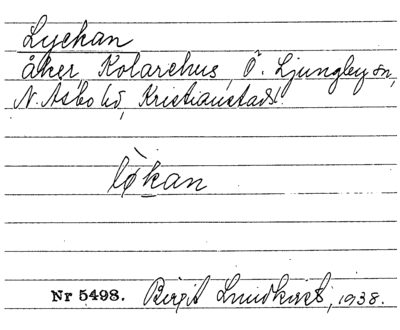 Lyckan
åker, Kolarehus, Ö. Ljungby sn,
N. Åsbo hd, Kristianstads l.
lø̀kan
Nr 5498. Birgit Lundkvist, 1938.